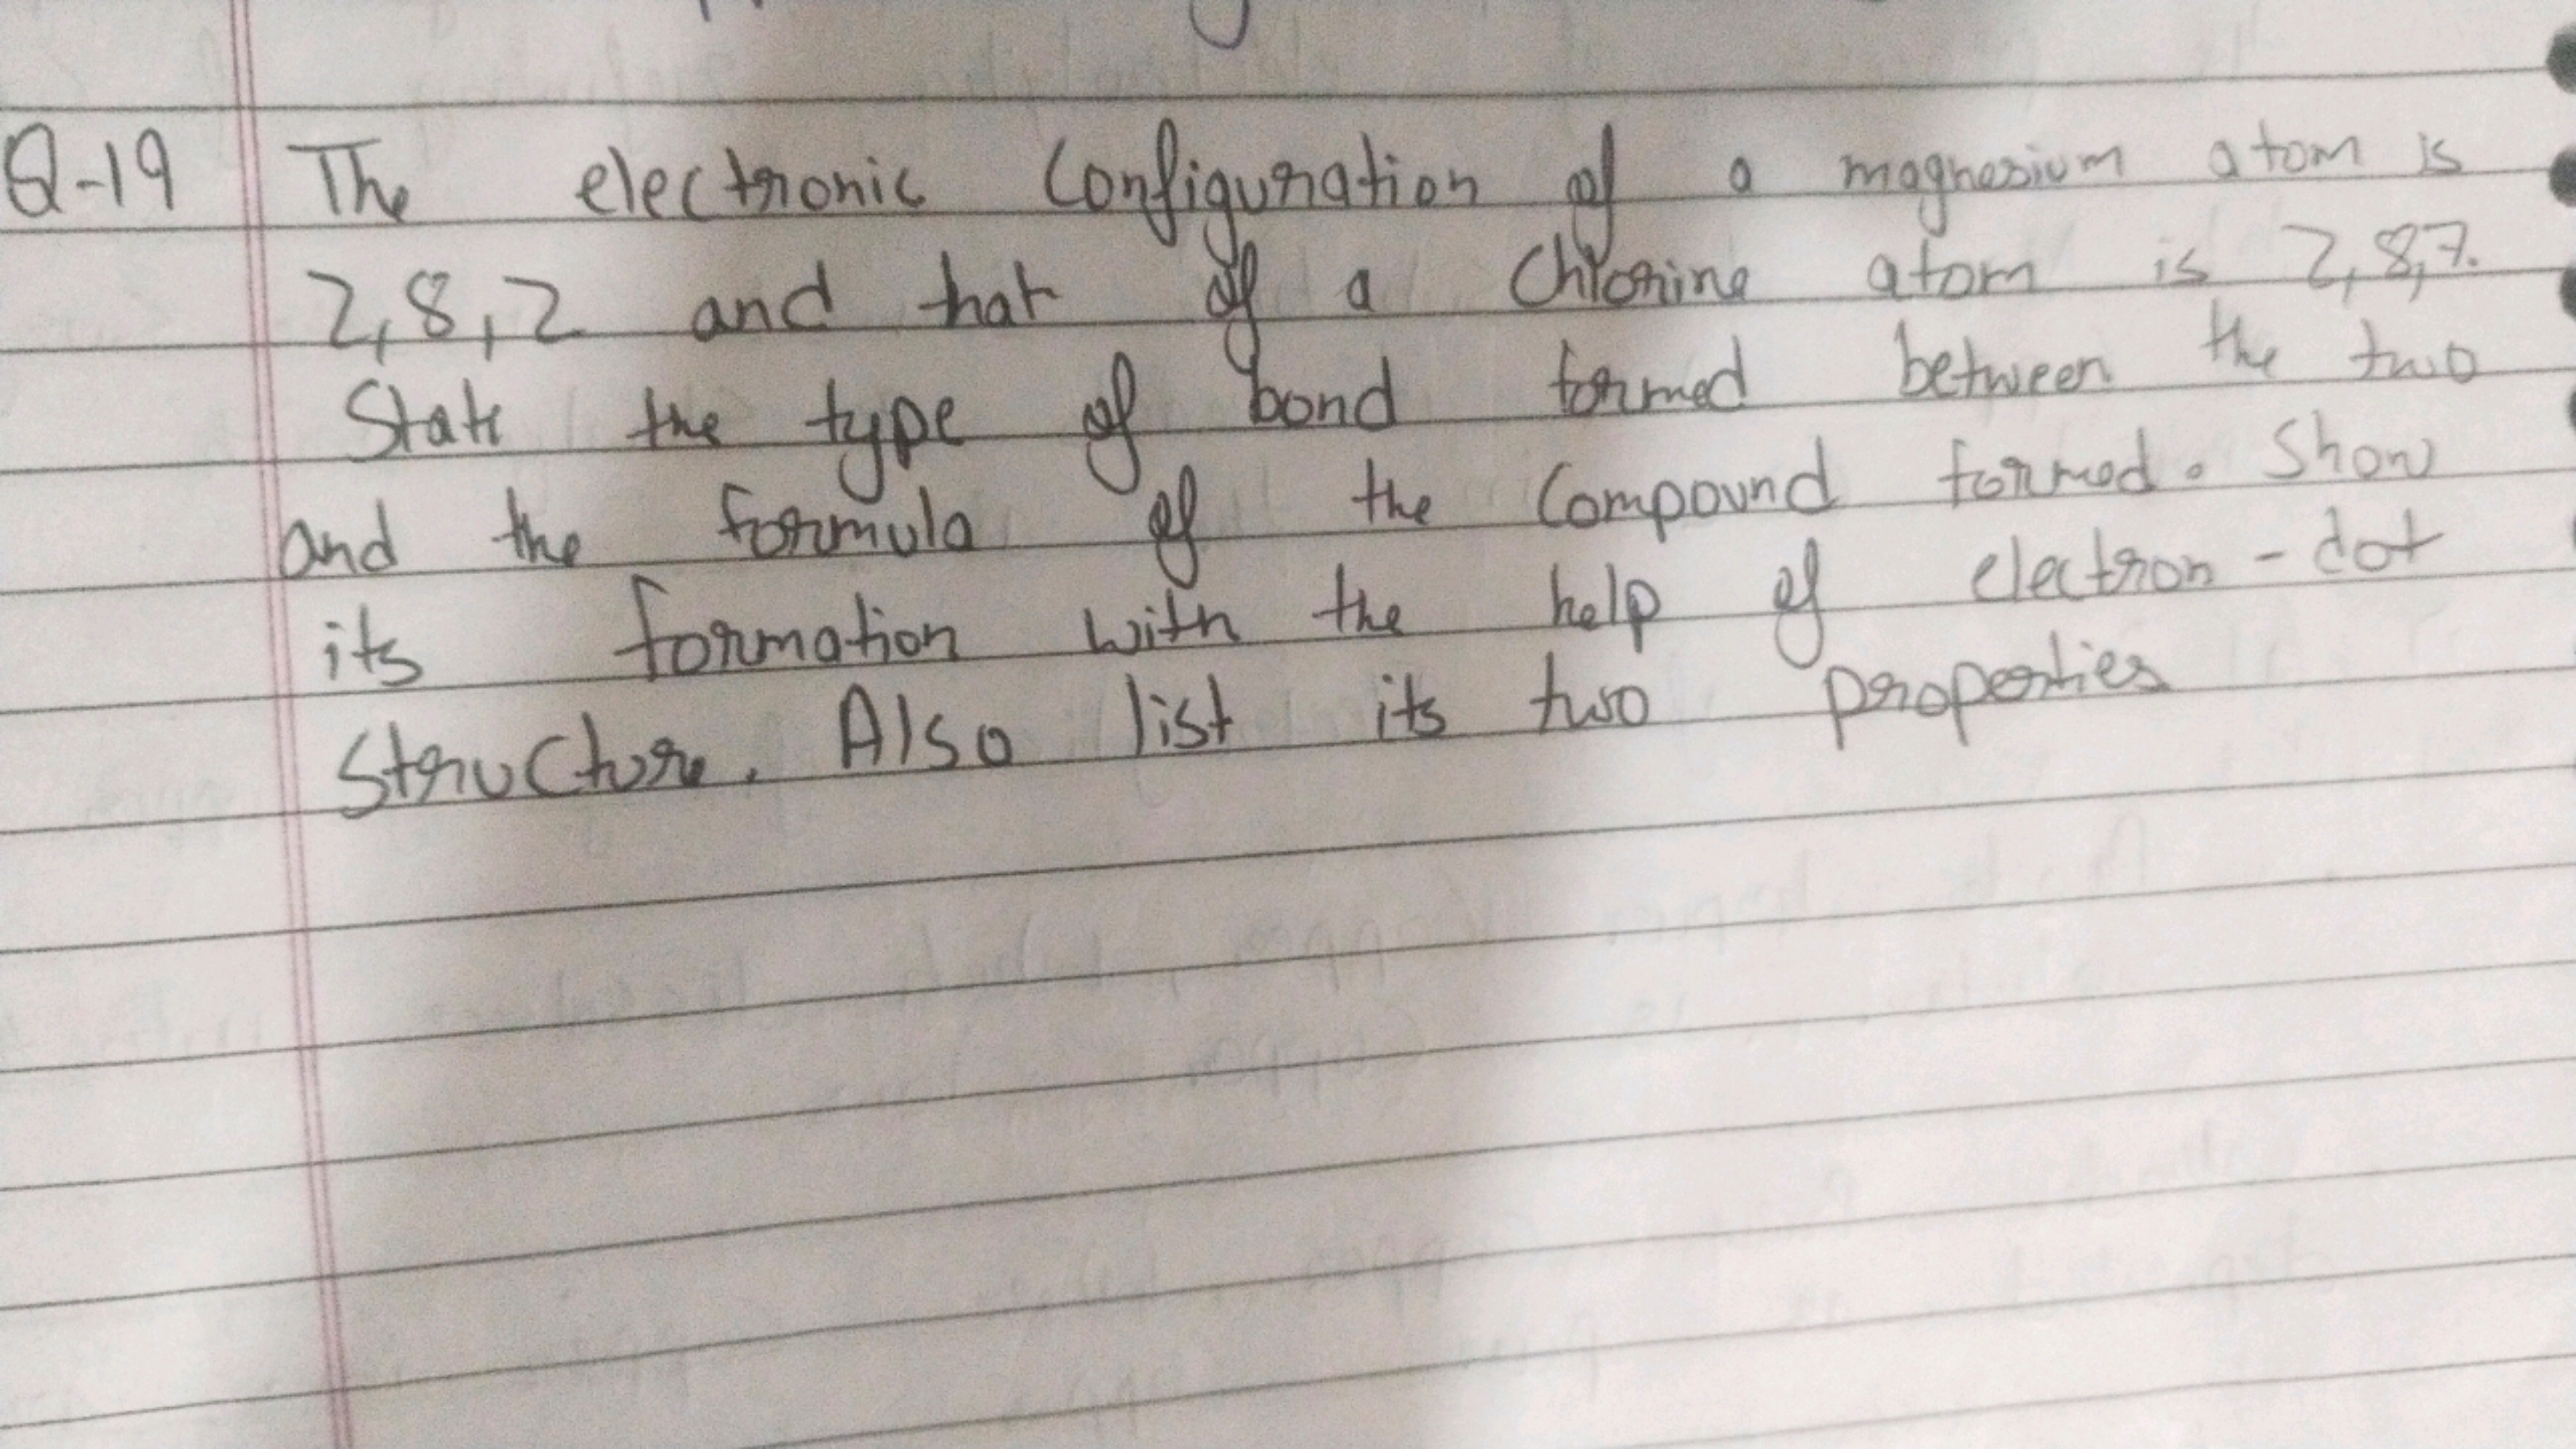 Q-19 The electronic Configuration of a magnesium atom is
2,8,2 and that of a Chlorine atom is 2,8,7.
State the type of bond formed between the two
and the formula of the Compound formed. Show
its formation with the help of electron-dot
Structure. Also list its two properties